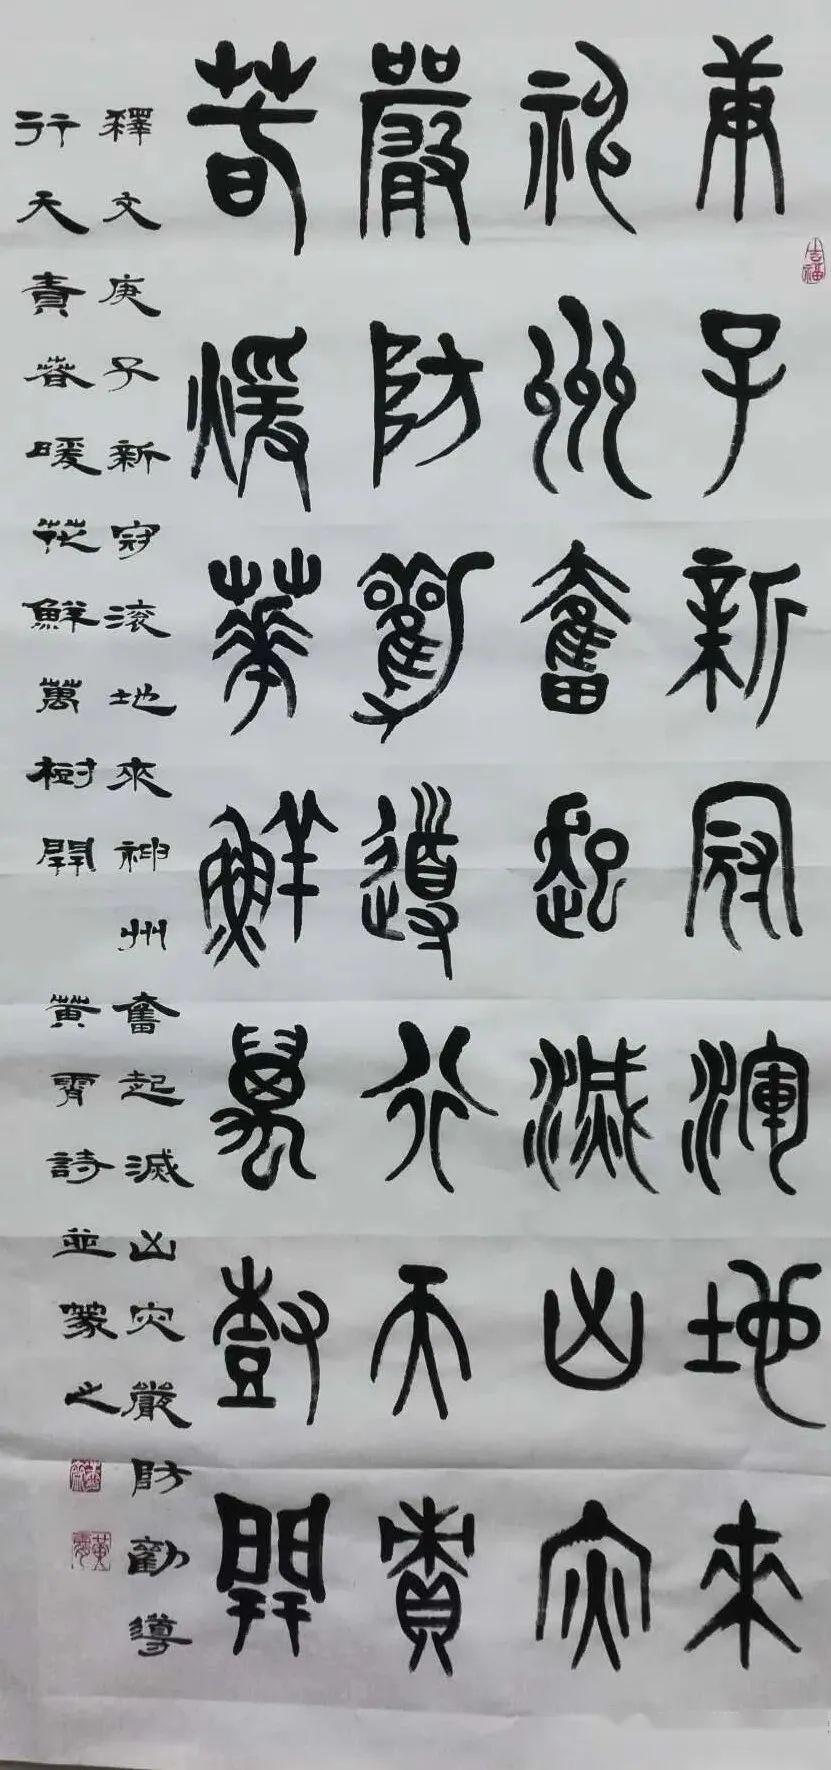 庚子新冠滚地來
神州奮起滅凶灾
嚴防勸導行天責
萅暖華鮮萬樹開
釋文庚子新冠滚地來神州奮起滅凶灾嚴防勸導
行天責春暖花鮮萬樹開 黄霄詩並篆之
吉福